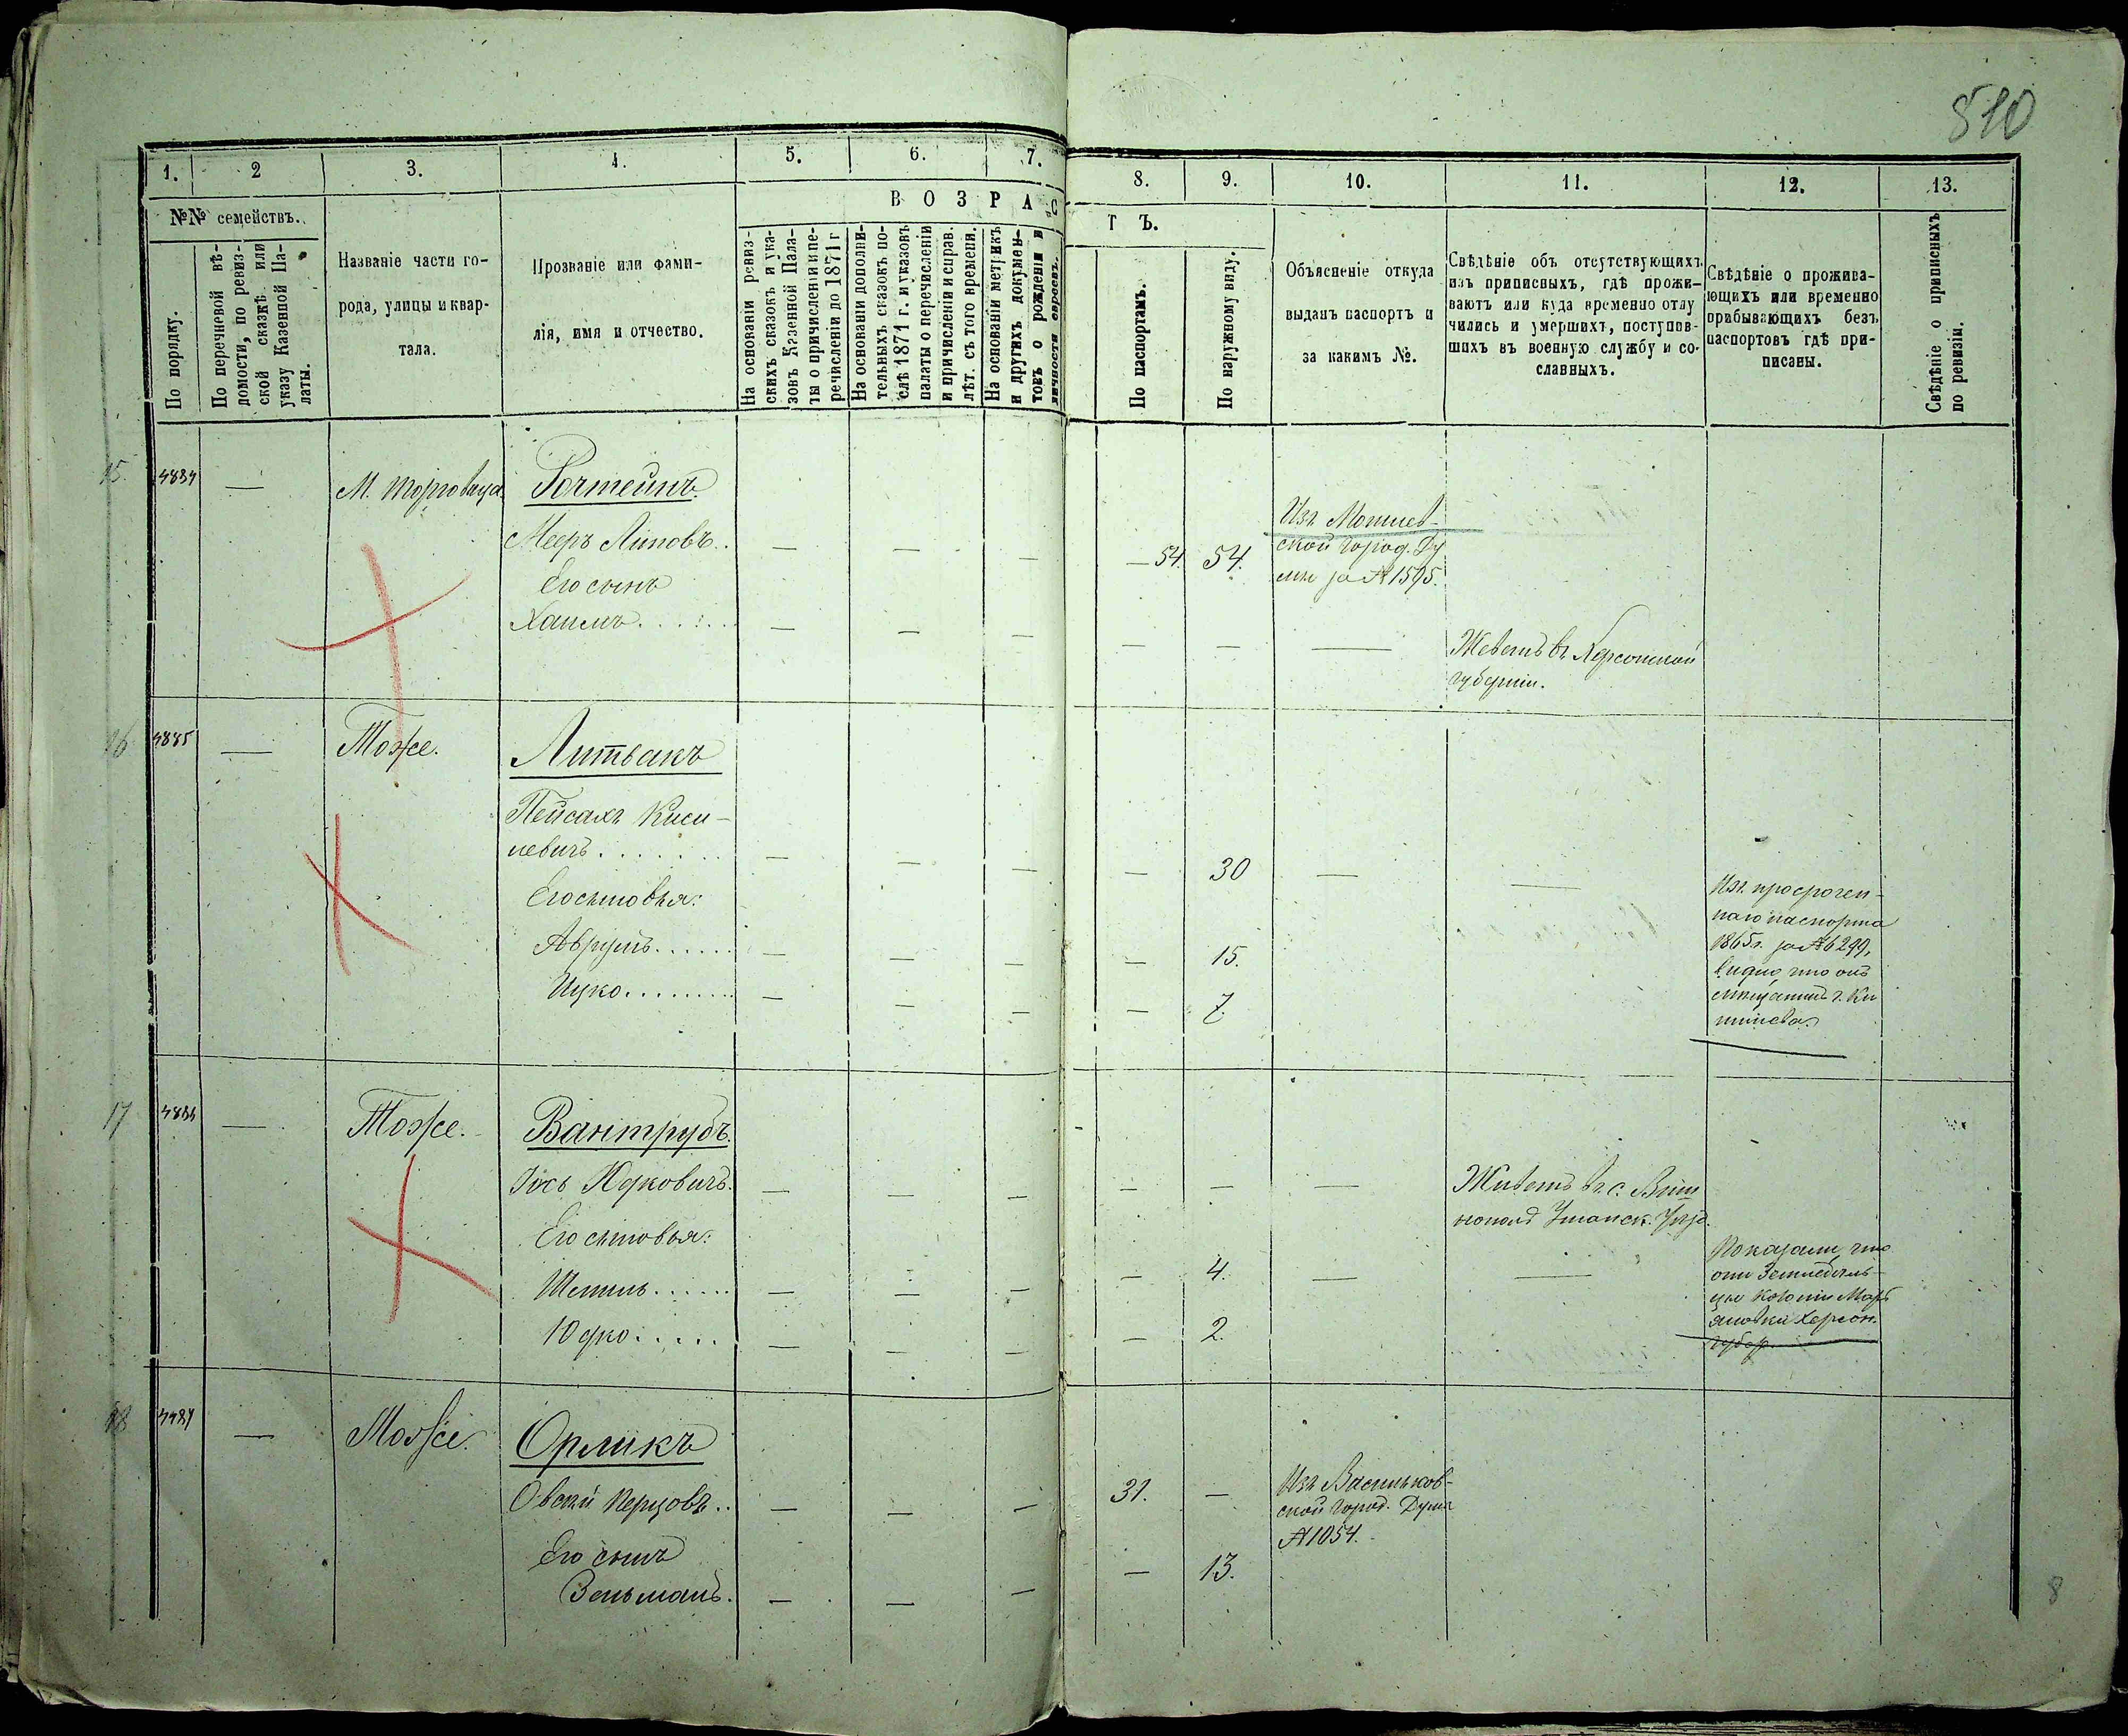 810
1. 2 3. 4. 5. 6. 7. 8. 9. 10. 11. 12. 13.
№№ семействъ.
В О З Р А С Т Ъ.
По порядку.
По перечневой вѣ-
домости, по ревиз-
ской сказкѣ или
указу Казенной Па-
латы.
Названіе части го-
рода, улицы и квар-
тала.
Прозваніе или фами-
лія, имя и отчество.
На основаніи ревиз-
скихъ сказокъ и ука-
зовъ Казенной Пала-
ты о причисленіи и пе-
речисленіи до 1871 г
На основаніи дополни-
тельныхъ сказокъ по-
слѣ 1871 г. и указовъ
палаты о перечисленіи
и причисленіи и справ.
лѣт. съ того времени.
На основаніи метрикъ
и другихъ докумен-
товъ о рожденіи и
По паспортамъ.
По наружному виду.
Объясненіе откуда
выданъ паспортъ и
за какимъ №.
Свѣдѣніе объ отсутствующихъ
изъ приписныхъ, гдѣ прожи-
ваютъ или куда временно отлу
чились и умершихъ, поступив-
шихъ въ военную службу и со-
славныхъ.
Свѣдѣніе о прожива-
ющихъ или временно
прибывающихъ безъ
паспортовъ гдѣ при-
писаны.
Свѣдѣніе о приписныхъ
по ревизіи.
15 — М. Торговица
Мееръ Липовъ.. — — — — 54. 54.
Его сынъ
Хаимъ....... — — — — — —
ской Город. Ду
мы за № 1595.
Живетъ въ Херсонской
губерніи.
16 4885 — Тоже. Литвакъ
Пейсахъ Киси-
левичъ....... — — — — 30 — —
Его сыновья:
Аврумъ...... — — — — 15.
Ицко........ — — — — 7.
Изъ просрочен-
наго паспорта
1865 г. за № 6299,
видно что онъ
мѣщанинъ г. Ки
шинева.
17 — Тоже. Вантрубъ.
Іось Юдковичъ. — — — — — —
Живетъ въ с.
Уманск. Уѣзд.
Его сыновья:
— — — — 4. — —
Юдко..... — — — — 2.
Показали, что
они Земледѣль-
цы колоніи
Херсон.
губер.
18 — Тоже. Орликъ
Перцовъ.. — — — 31. —
Изъ Васильков-
ской Город. Думы
№ 1054.
Его сынъ
Зельманъ. — — — — 13.
8